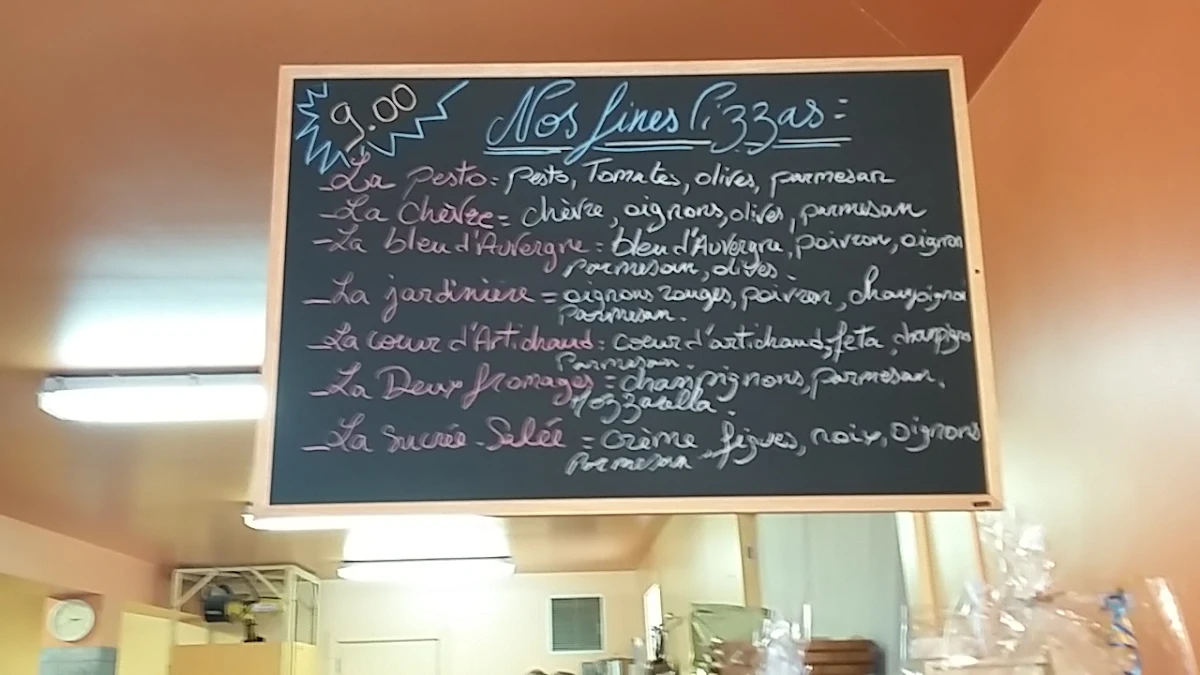 9.00
Nos fines Pizzas :
- La pesto : pesto, Tomates, olives, parmesan
- La Chèvre = chèvre, oignons, olives, parmesan
- La bleu d'Auvergne : bleu d'Auvergne, poivron, oignon
parmesan, olives.
- La jardinière = oignons rouges, poivron, champignon
Parmesan.
- La coeur d'Artichaud : coeur d'artichaud, feta, champignon
Parmesan.
- La Deux fromages = champignons, parmesan,
Mozzarella.
- La Sucrée-Salée = crème figues, noix, oignons
Parmesan